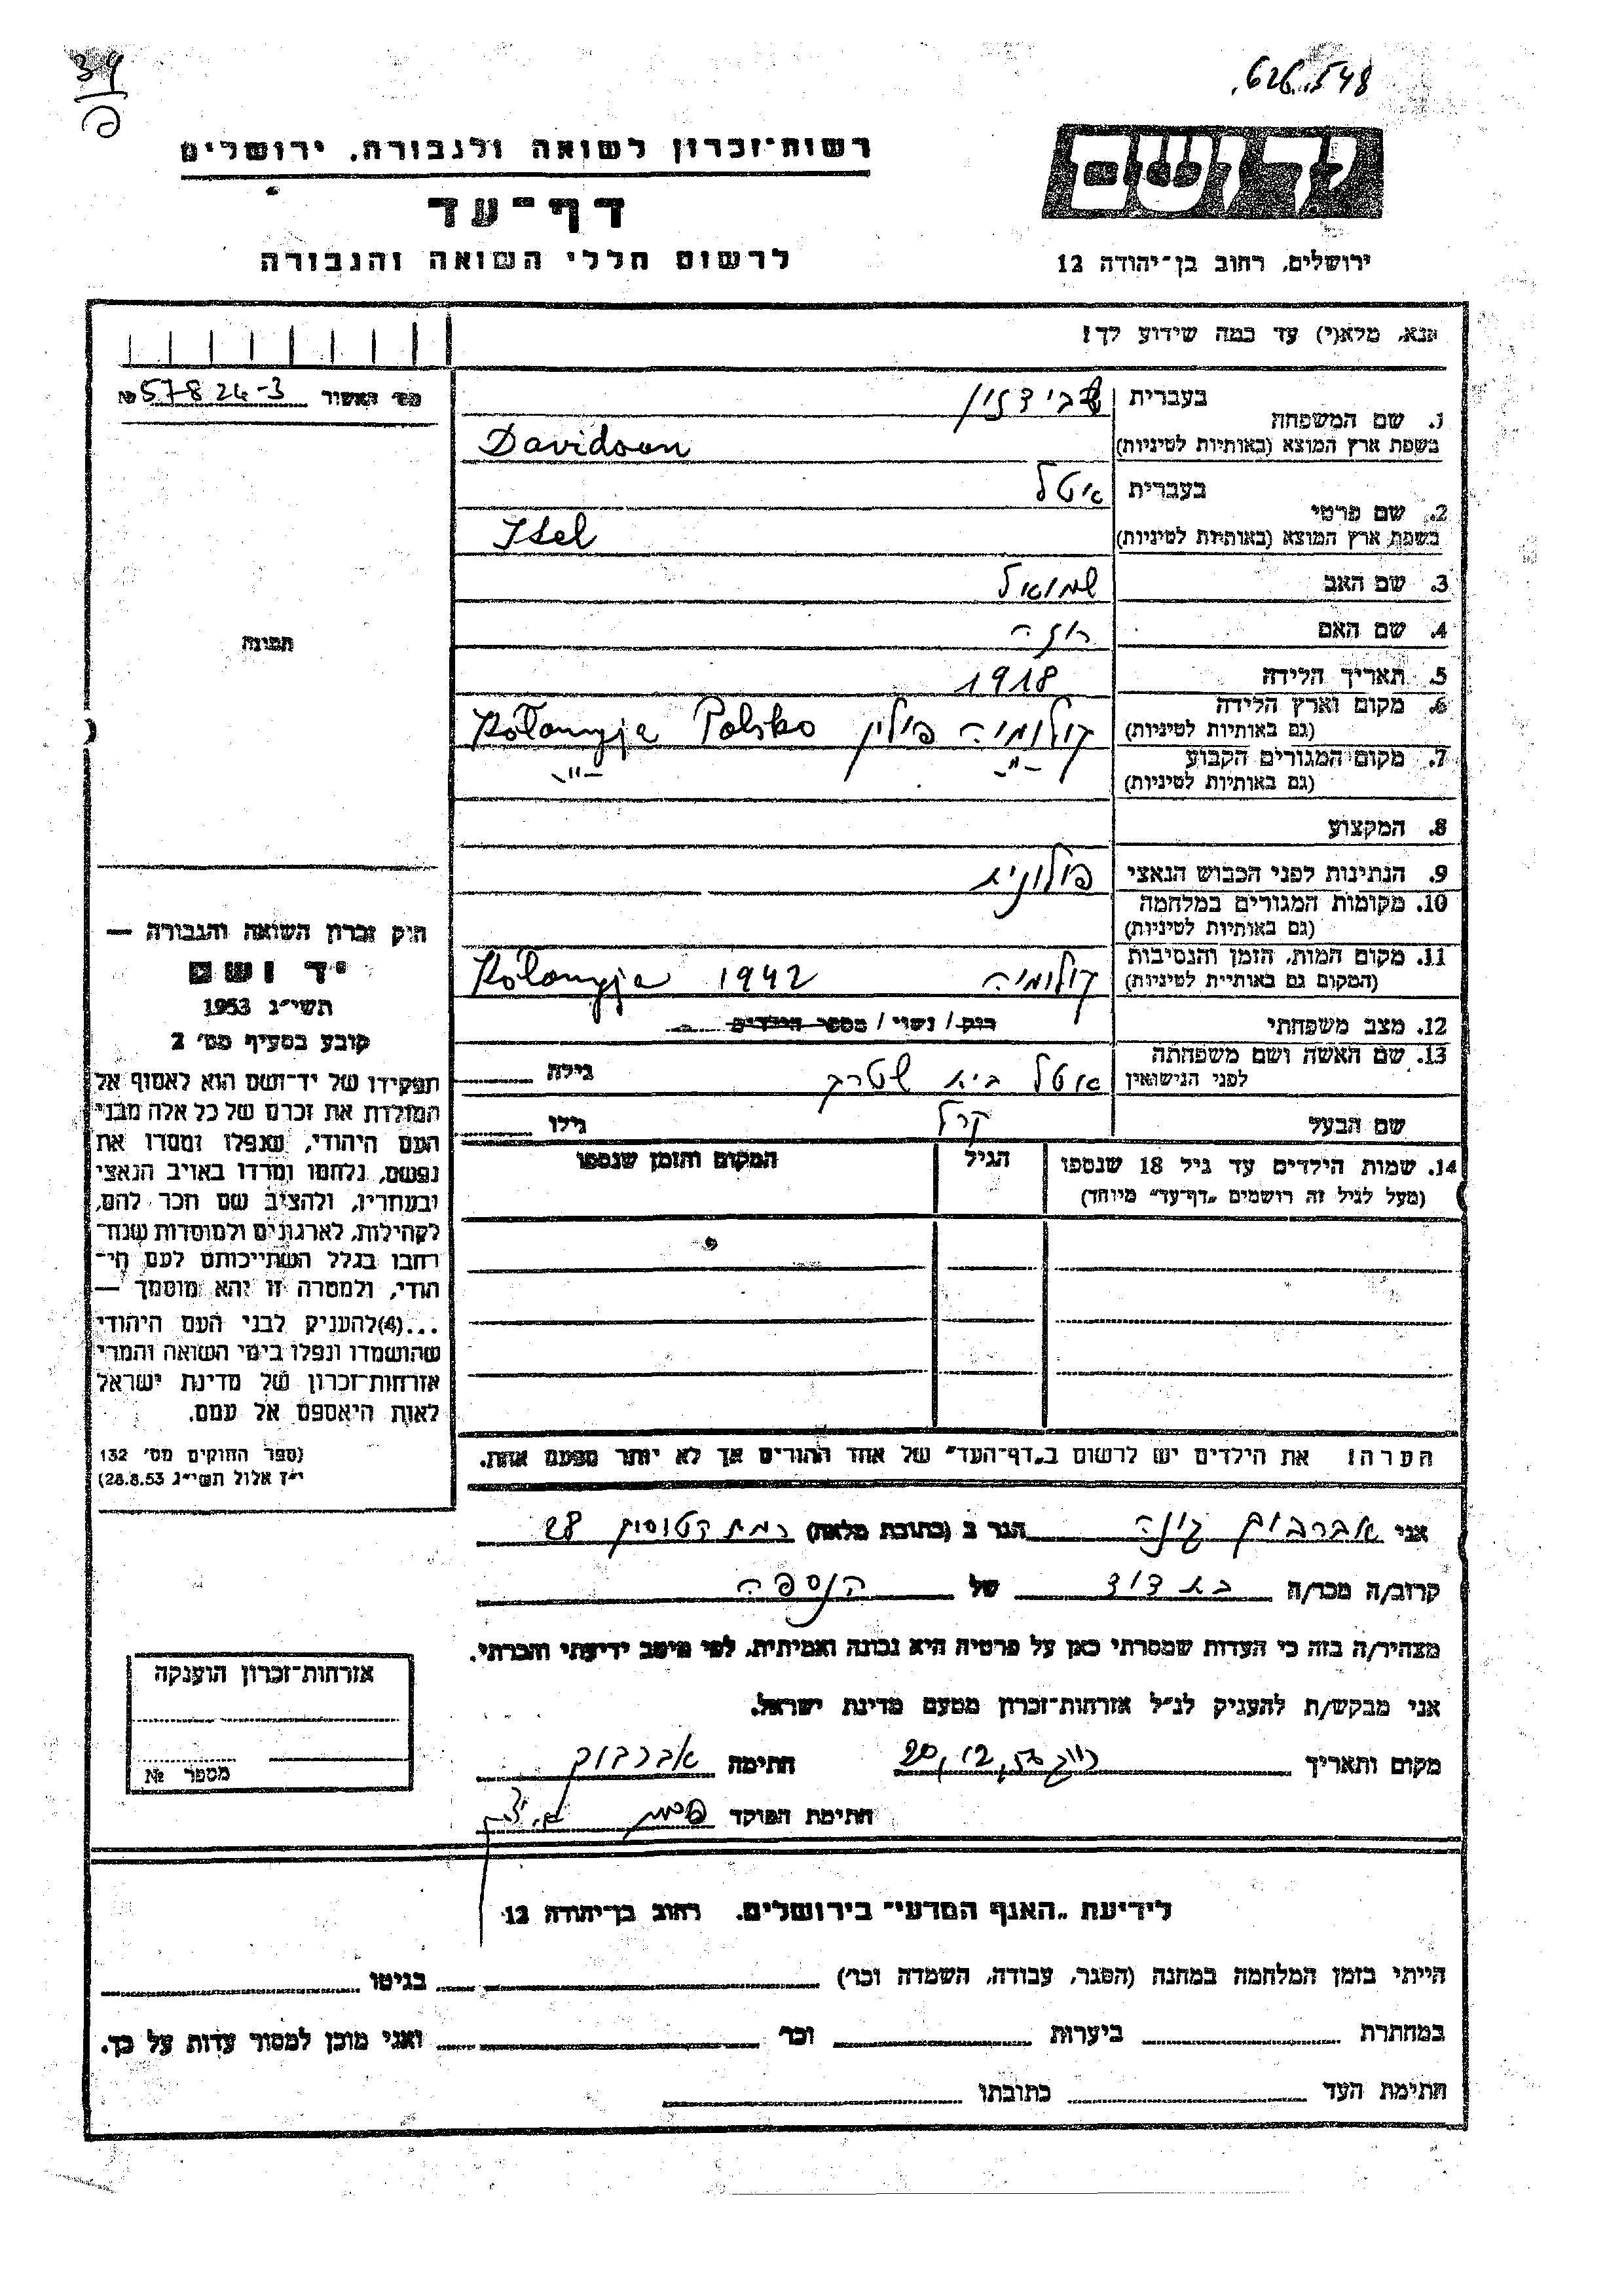 39
626.548
רשות־זכרון לשואה ולגבורה, ירושלים
דף־עד
לרשום חללי השואה והגבורה
יד ושם
ירושלים, רחוב בן־יהודה 12
אנא, מלא(י) עד כמה שידוע לך!
מס׳ האשור № 57824-3
1. שם המשפחה
בעברית
בשפת ארץ המוצא (באותיות לטיניות) Davidson
2. שם פרטי
בעברית איטל
בשפת ארץ המוצא (באותיות לטיניות) Itel
3. שם האב שמואל
4. שם האם רוזה
5. תאריך הלידה 1918
6. מקום וארץ הלידה (גם באותיות לטיניות) קולומיה פולין Kołomyja Polsko
7. מקום המגורים הקבוע (גם באותיות לטיניות) -"- -"-
8. המקצוע
9. הנתינות לפני הכבוש הנאצי פולונית
10. מקומות המגורים במלחמה (גם באותיות לטיניות)
11. מקום המות, הזמן והנסיבות (המקום גם באותיות לטיניות) קולומיה 1942 Kołomyja
12. מצב משפחתי רוק / נשוי / מספר הילדים
13. שם האשה ושם משפחתה לפני הנישואין איטל בית שטרק גילה
שם הבעל קרל גילו
14. שמות הילדים עד גיל 18 שנספו
(מעל לגיל זה רושמים „דף־עד” מיוחד)
הגיל
המקום והזמן שנספו
הערה! את הילדים יש לרשום ב„דף־העד” של אחד ההורים אך לא יותר מפעם אחת.
תמונה
חוק זכרון השואה והגבורה —
יד ושם
תשי״ג 1953
קובע בסעיף מס׳ 2
תפקידו של יד־ושם הוא לאסוף אל
המולדת את זכרם של כל אלה מבני
העם היהודי, שנפלו ומסרו את
נפשם, נלחמו ומרדו באויב הנאצי
ובעוזריו, ולהציב שם וזכר להם,
לקהילות, לארגונים ולמוסדות שנח־
רבו בגלל השתייכותם לעם הי־
הודי, ולמטרה זו יהא מוסמך —
...(4) להעניק לבני העם היהודי
שהושמדו ונפלו בימי השואה והמרי
אזרחות־זכרון של מדינת ישראל
לאות היאספם אל עמם.
(ספר החוקים מס׳ 132
י״ז אלול תשי״ג 28.8.53)
אני אברבוך הגר ב (כתובת מלאה) 28
קרוב/ה מכר/ה בת דוד של הנספה
מצהיר/ה בזה כי העדות שמסרתי כאן על פרטיה היא נכונה ואמיתית, לפי מיטב ידיעתי והכרתי.
אני מבקש/ת להעניק לנ״ל אזרחות־זכרון מטעם מדינת ישראל.
מקום ותאריך 20.12.56 חתימה אברבוך
חתימת הפוקד
אזרחות־זכרון הוענקה
מספר №
לידיעת „האגף המדעי” בירושלים, רחוב בן־יהודה 12
הייתי בזמן המלחמה במחנה (הסגר, עבודה, השמדה וכו׳) בגיטו
במחתרת ביערות וכו׳ ואני מוכן למסור עדות על כך.
חתימת העד כתובתו